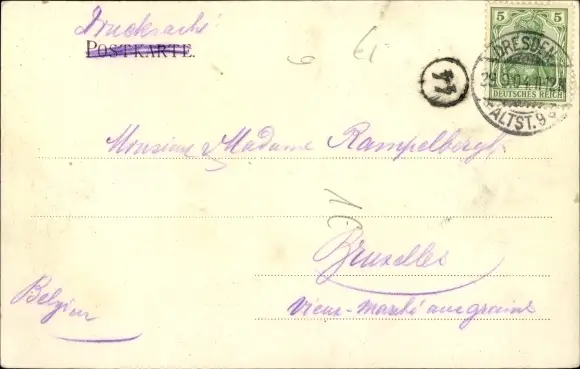 Drucksache
POSTKARTE.
5 5
DEUTSCHES REICH
DRESDEN
29.9.04.11-12
ALTST. 9
Monsieur & Madame Rampelbergh
Bruxelles
Vieux-Marché aux grains
Belgien